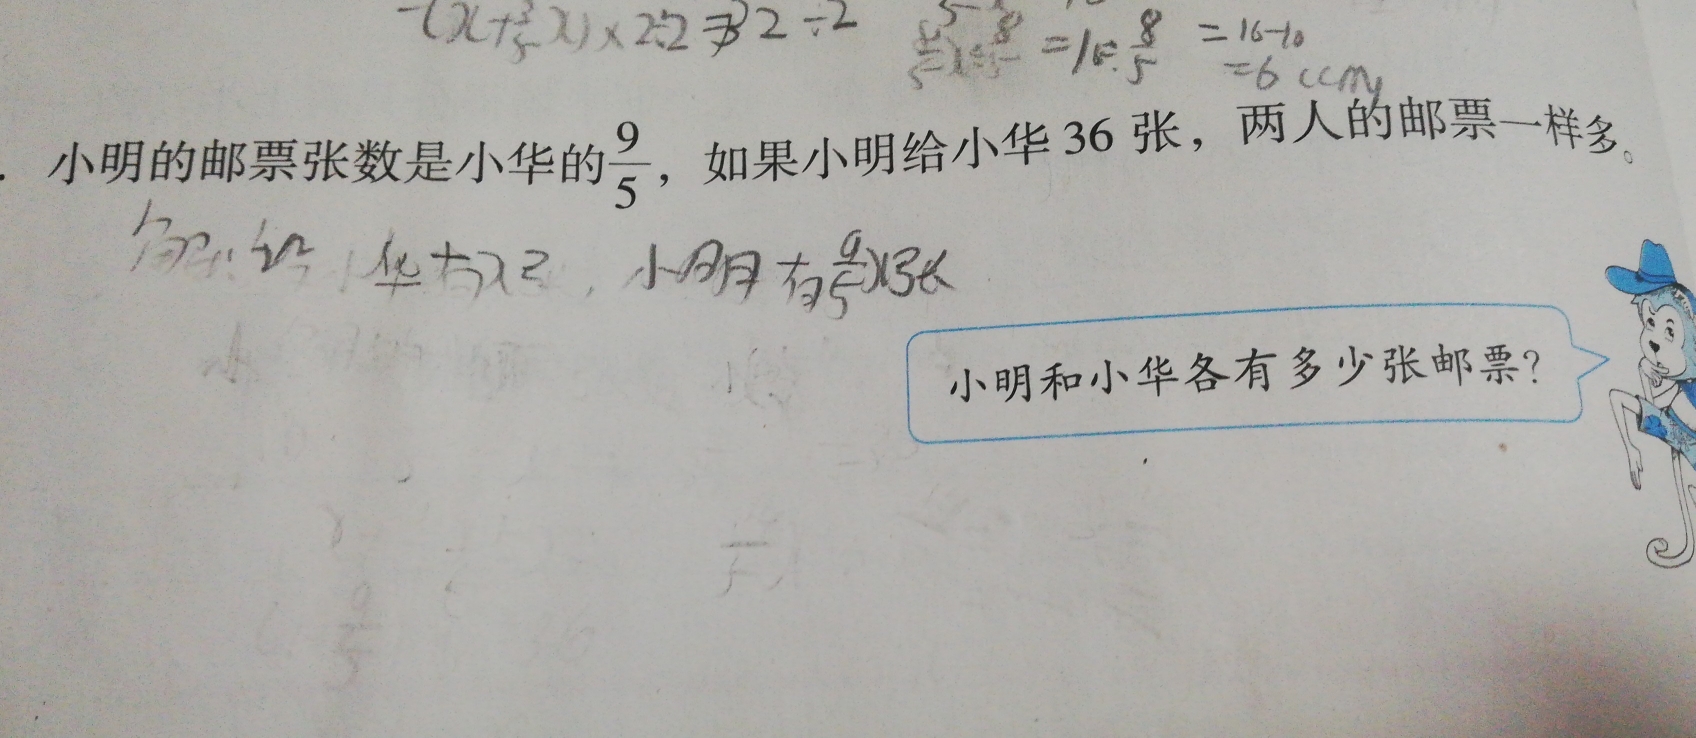 -(x+3/5x)×2÷2=32÷2
=16÷8/5
=16-10
=6(cm)
小明的邮票张数是小华的9/5，如果小明给小华36张，两人的邮票一样多。
解:设 华有x张，小明有9/5x张
小明和小华各有多少张邮票？